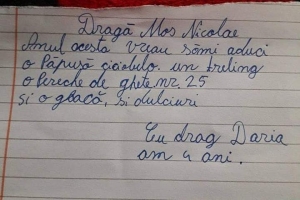 Dragă Moș Nicolae
Anul acesta vreau sămi aduci
o Păpușă un treling
o Pereche de ghete nr. 25
și o geacă, și dulciuri
Cu drag Daria
am 4 ani.